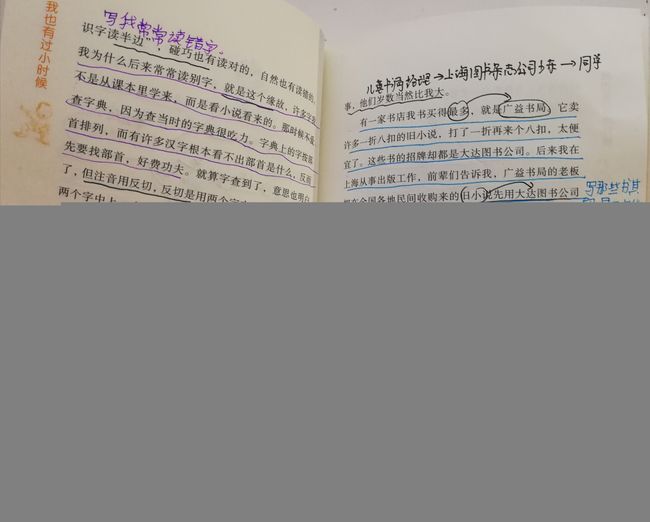 我也有过小时候
写我常常读错字。
识字读半边”，碰巧也有读对的，自然也有读错的，
我为什么后来常常读别字，就是这个缘故，许多字我
不是从课本里学来，而是看小说看来的。那时候不能
查字典，因为查当时的字典很吃力。字典上的字按部
首排列，而有许多汉字根本看不出部首是什么，反而
先要找部首，好费功夫。就算字查到了，意思也明白
了，但注音用反切，反切是用两个字
两个字中上
→上海图书杂志公司 →同学
事，他们岁数当然比我大。
有一家书店我书买得最多，就是广益书局。它卖
许多一折八扣的旧小说，打了一折再来个八扣，太便
宜了。这些书的招牌却都是大达图书公司。后来我在
上海从事出版工作，前辈们告诉我，广益书局的老板
把在全国各地民间收购来的旧小说先用大达图书公司
写那些书其